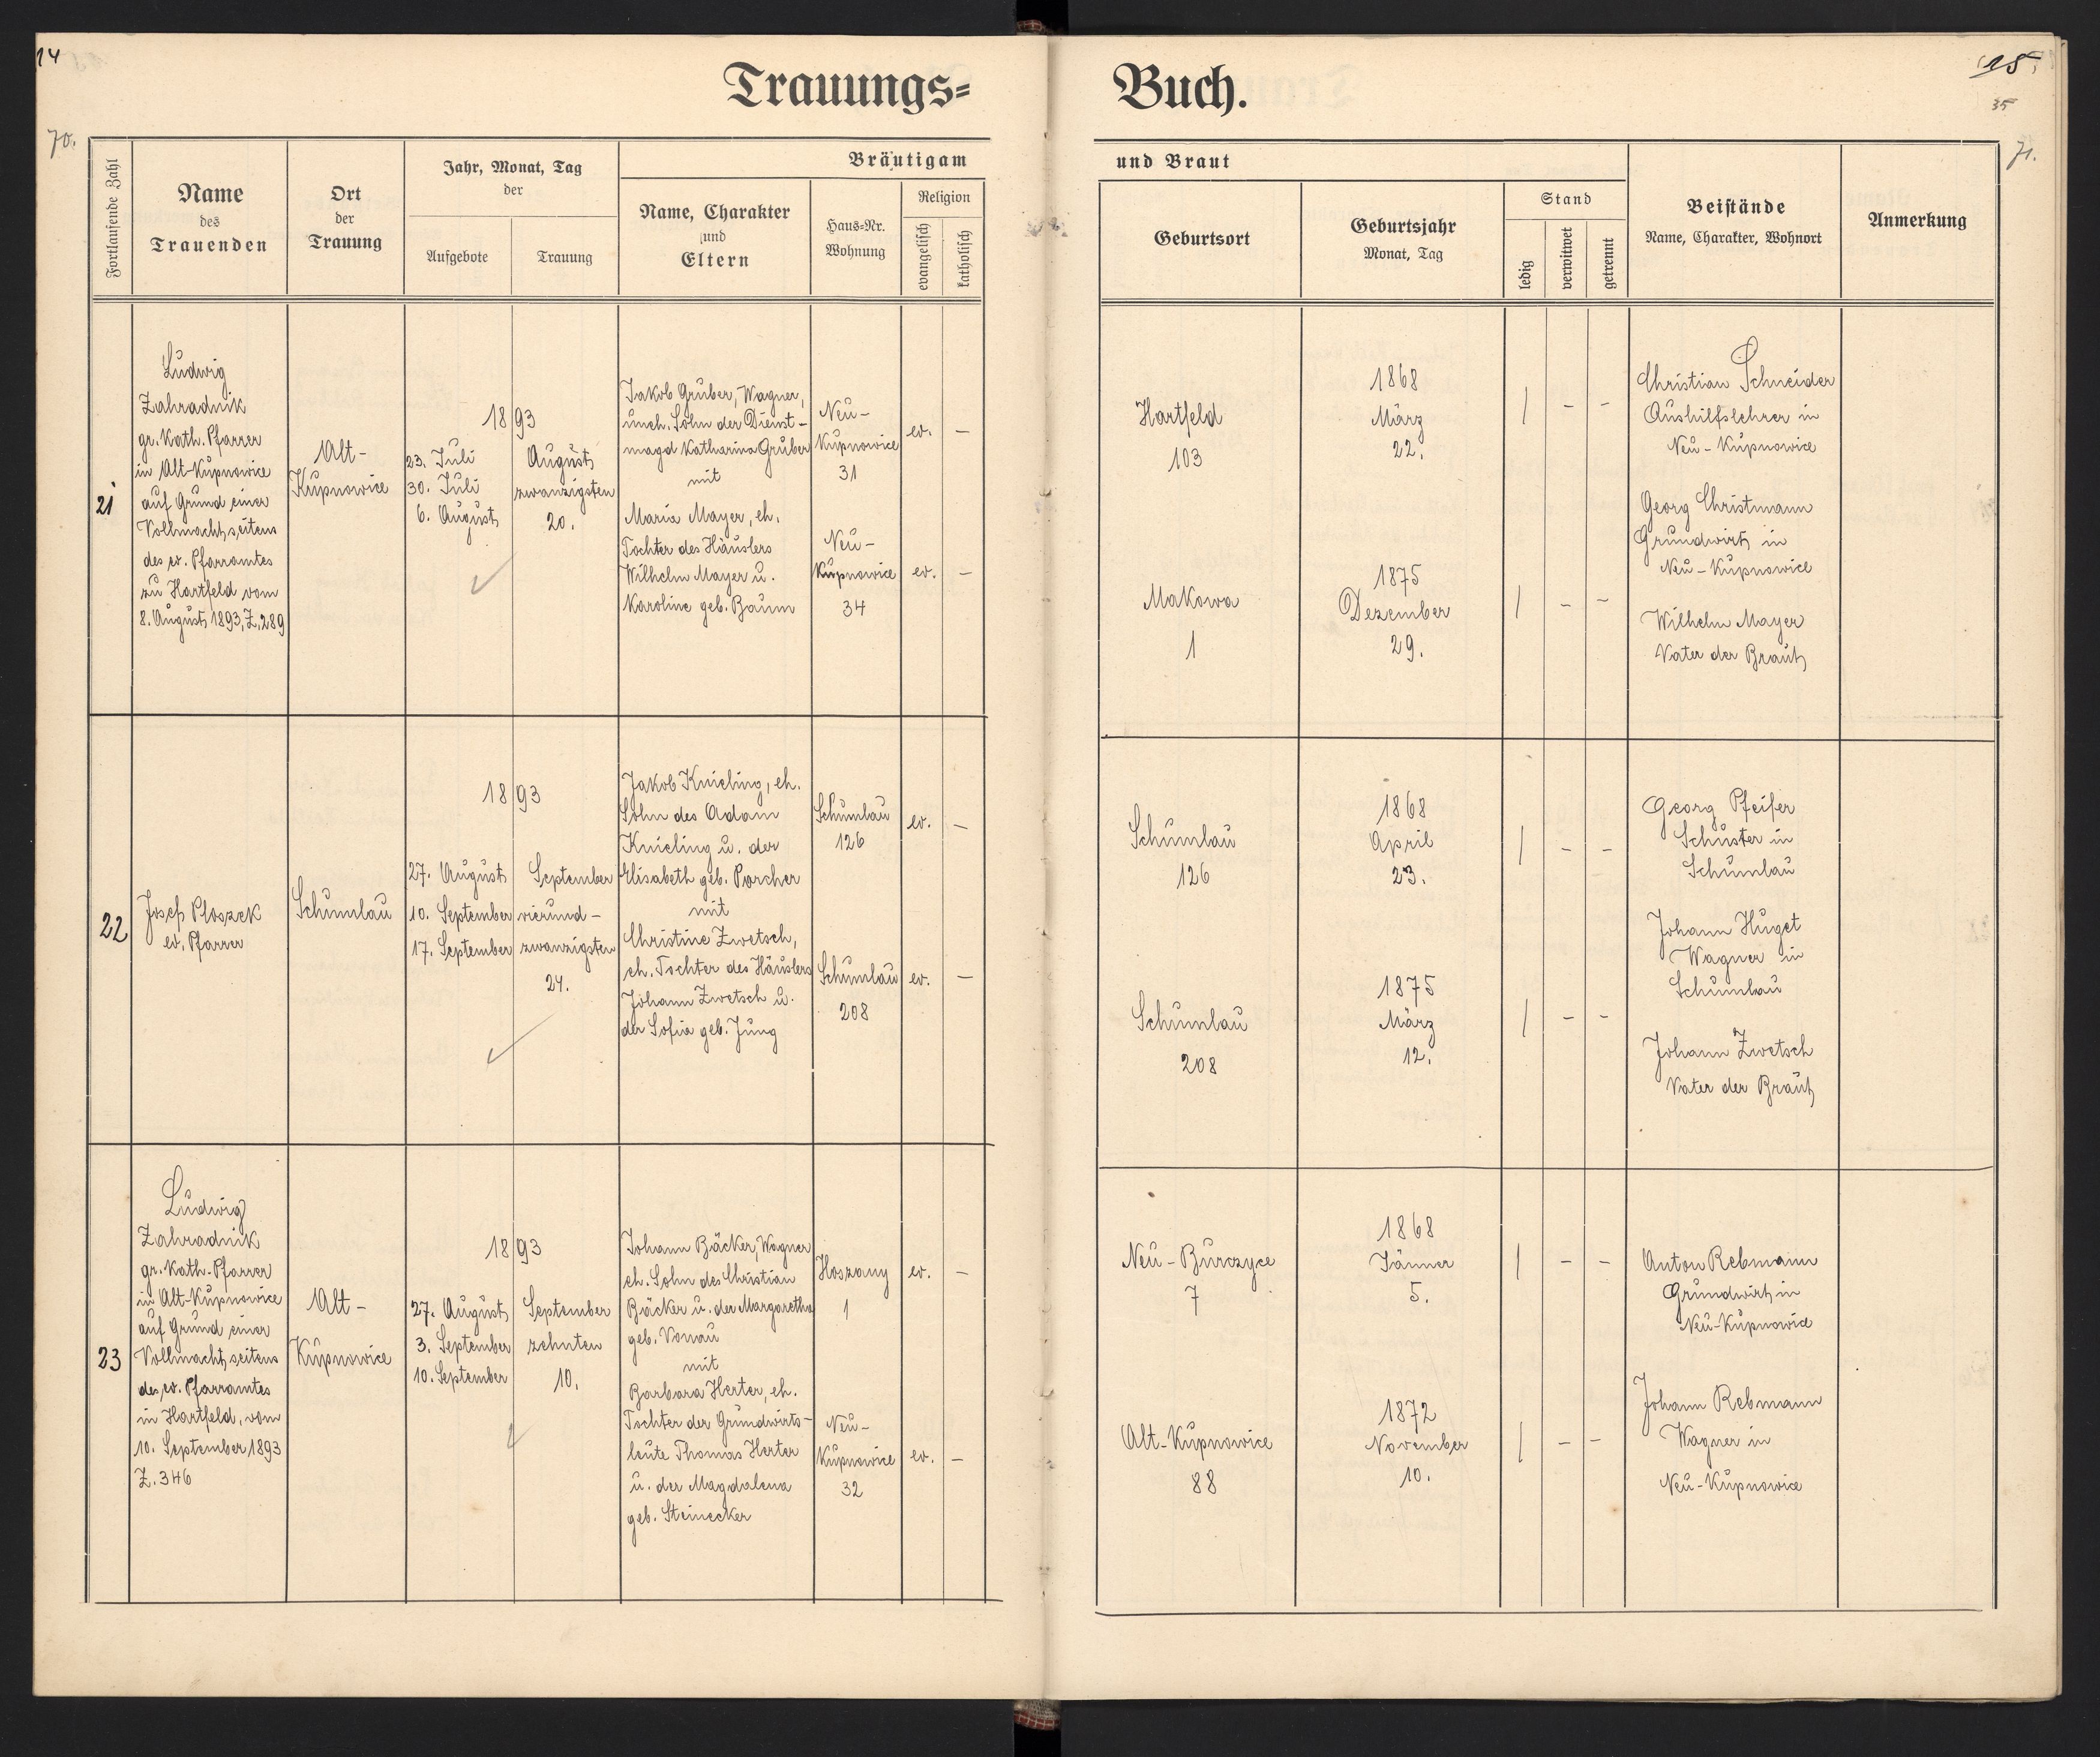 14
Trauungs=
Buch.
15.
35
70.
71.
Fortlaufende Zahl
Name
des
Trauenden
Ort
der
Trauung
Jahr, Monat, Tag
der
Aufgebote
Trauung
Bräutigam
Name, Charakter
und
Eltern
Haus=Nr.
Wohnung
Religion
evangelisch
katholisch
und Braut
Geburtsort
Geburtsjahr
Monat, Tag
Stand
ledig
verwittwet
getrennt
Beistände
Name, Charakter, Wohnort
Anmerkung
21
Ludwig
Zahradnik
gr. Kath. Pfarrer
in Alt-Kupnowice
auf Grund einer
Vollmacht seitens
des ev. Pfarramtes
zu Hartfeld vom
8. August 1893, Z. 289
Alt-
Kupnowice
1893
23. Juli
30. Juli
6. August
August
zwanzigsten
20.
Jakob Gruber, Wagner,
uneh. Sohn der Dienst-
magd Katharina Gruber
mit
Maria Mayer, eh.
Tochter des Häuslers
Wilhelm Mayer u.
Karoline geb. Baum
Neu-
Kupnowice
31
ev. –
Neu-
Kupnowice
34
ev. –
Hartfeld
103
1868
März
22.
| – –
Makowa
1
1875
Dezember
29.
| – –
Christian Schneider
Aushilfslehrer in
Neu-Kupnowice
Georg Christmann
Grundwirt in
Neu-Kupnowice
Wilhelm Mayer
Vater der Braut
22
Josef Ploszek
ev. Pfarrer
Schumlau
1893
27. August
10. September
17. September
September
vierund-
zwanzigsten
24.
Jakob Knieling, eh.
Sohn des Adam
Knieling u. der
Elisabeth geb. Porcher
mit
Christine Zwetsch,
eh. Tochter des Häuslers
Johann Zwetsch u.
der Sofia geb. Jung
Schumlau
126
ev. –
Schumlau
208
ev. –
Schumlau
126
1868
April
23.
| – –
Schumlau
208
1875
März
12.
| – –
Georg Pfeifer
Schuster in
Schumlau
Johann Huget
Wagner in
Schumlau
Johann Zwetsch
Vater der Braut
23
Ludwig
Zahradnik
gr. Kath. Pfarrer
in Alt-Kupnowice
auf Grund einer
Vollmacht seitens
des ev. Pfarramtes
in Hartfeld, vom
10. September 1893
Z. 346
Alt-
Kupnowice
1893
27. August
3. September
10. September
September
zehnten
10.
Johann Bäcker, Wagner
eh. Sohn des Christian
Bäcker u. der Margaretha
geb. Vonau
mit
Barbara Herter, eh.
Tochter der Grundwirts-
leute Thomas Herter
u. der Magdalena
geb. Steinecker
Hoszany
1
ev. –
Neu-
Kupnowice
32
ev. –
Neu-Burczyce
7
1868
Jänner
5.
| – –
Alt-Kupnowice
88
1872
November
10.
| – –
Anton Rebmann
Grundwirt in
Neu-Kupnowice
Johann Rebmann
Wagner in
Neu-Kupnowice